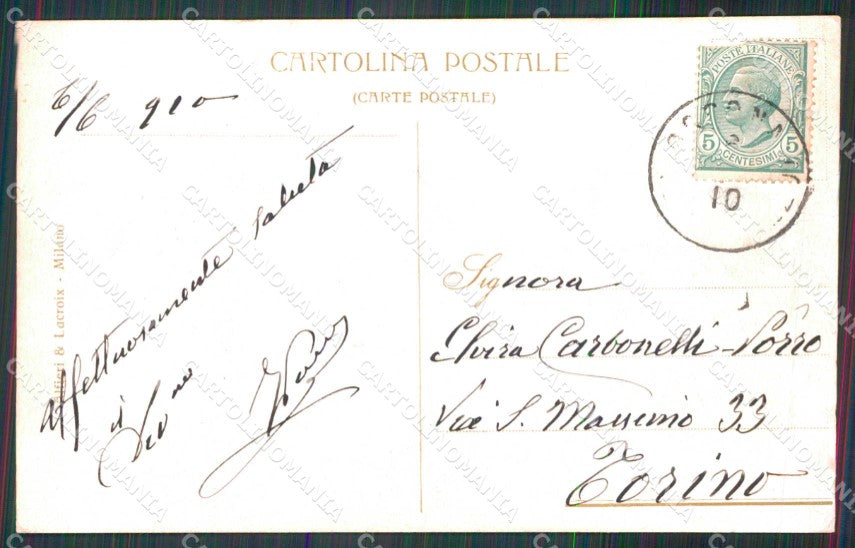 CARTOLINA POSTALE
(CARTE POSTALE)
6/6 910
affettuosamente saluta
il
& Lacroix - Milano
POSTE ITALIANE
5 5
CENTESIMI
10
Signora
Elvira Carbonelli-Porro
Via S. Massimo 33
Torino
CARTOLINOMANIA